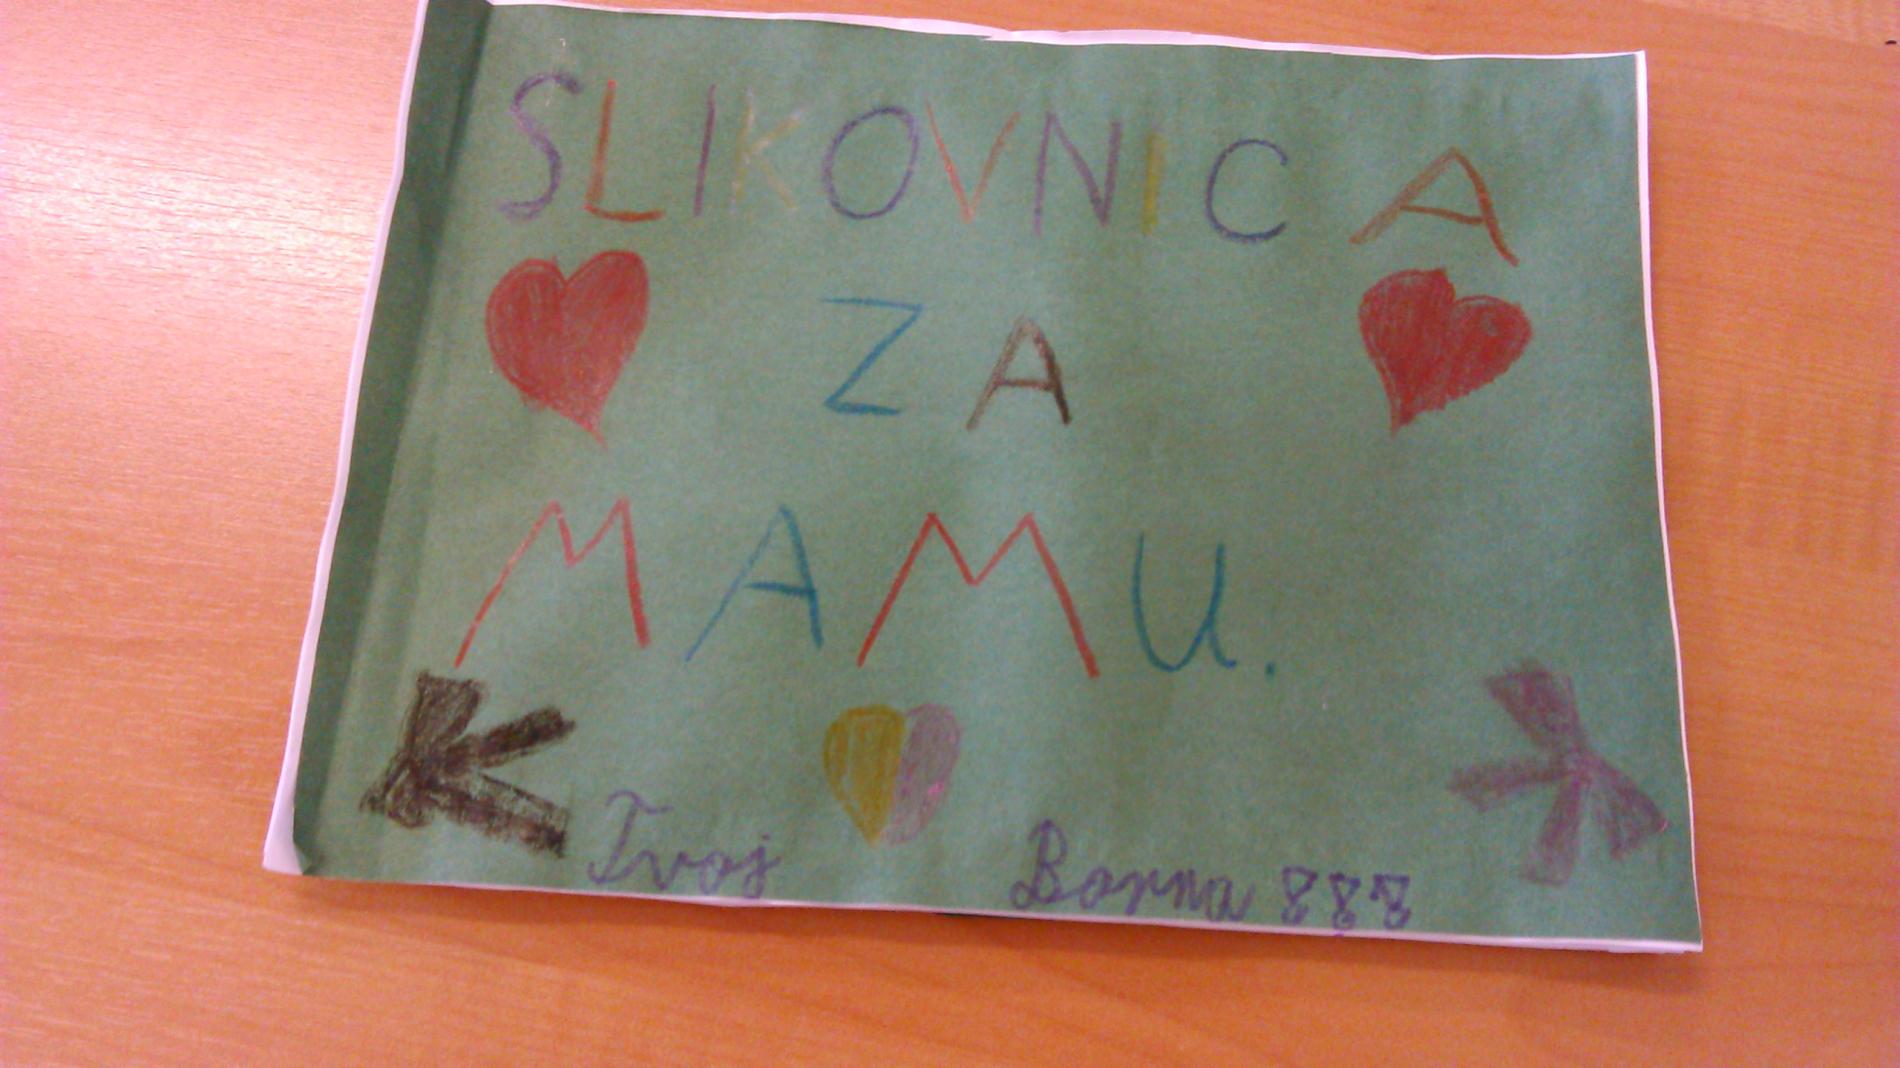 SLIKOVNICA
ZA
MAMU.
Tvoj Borna